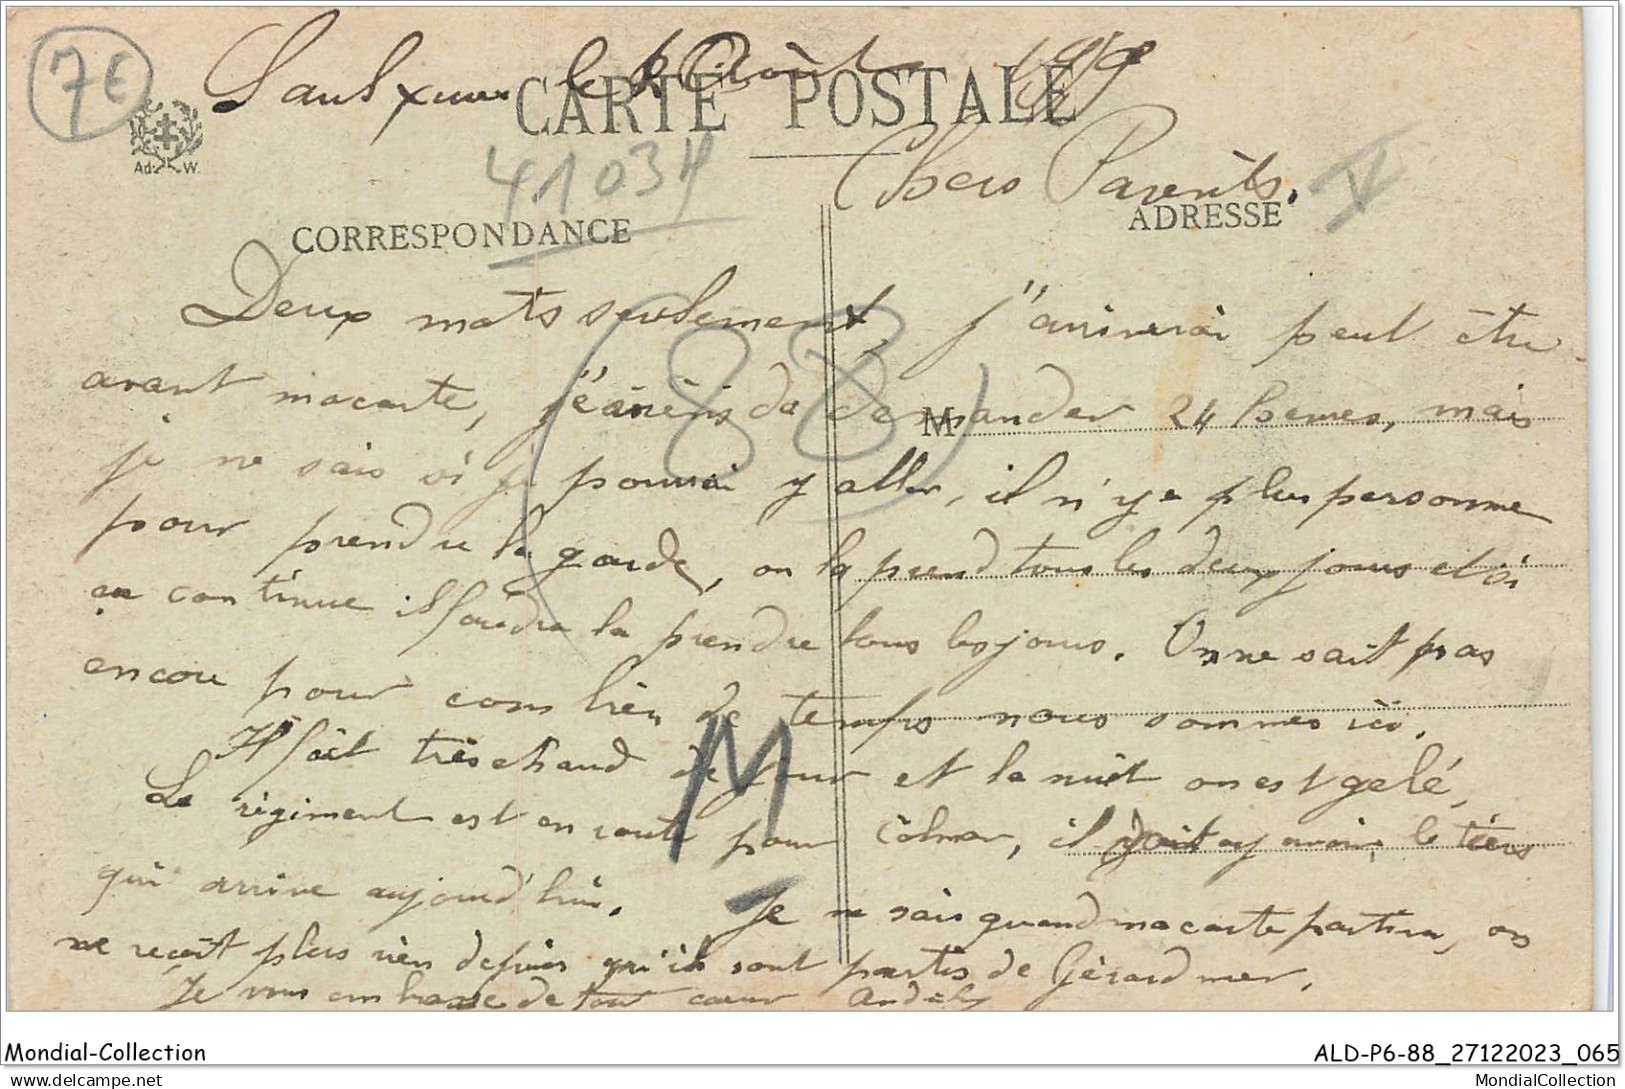 7€
Saulxures le 2 Août 1919
CARTE POSTALE
Ad. W.
41034
Chers Parents.
V
CORRESPONDANCE
ADRESSE
Deux mots seulement, j'arriverai peut être
(88)
avant ma carte, j' de demander 24 heures, mais
M
je ne sais si je pourrai y aller, il n'y a plus personne
pour prendre la garde, on la prend tous les deux jours et si
ça continue il faudra la prendre tous les jours. On ne sait pas
encore pour combien de temps nous sommes ici.
Il fait très chaud de jour et la nuit on est gelé,
M
Le régiment est en route pour Colmar, il doit y avoir le tiers
qui arrive aujourd'hui. Je ne sais quand ma carte partira, on
ne reçoit plus rien depuis qu'ils sont partis de Gérardmer.
Je vous embrasse de tout cœur
Mondial-Collection
ALD-P6-88_27122023_065
www.delcampe.net
MondialCollection